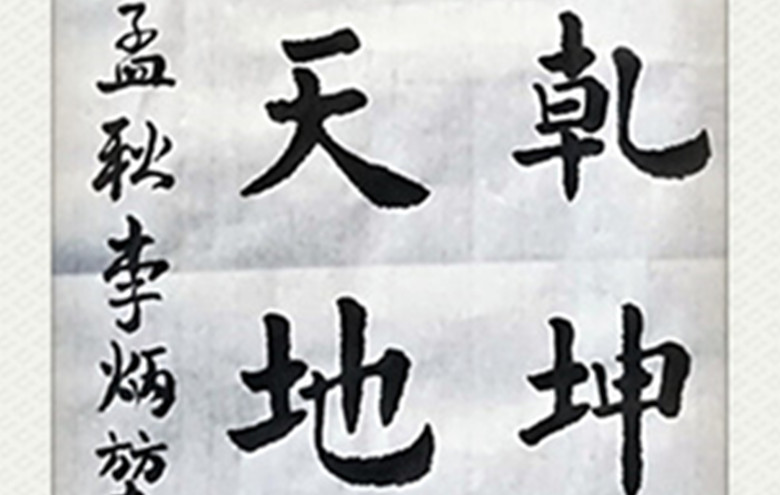 乾坤
天地
孟秋李炳